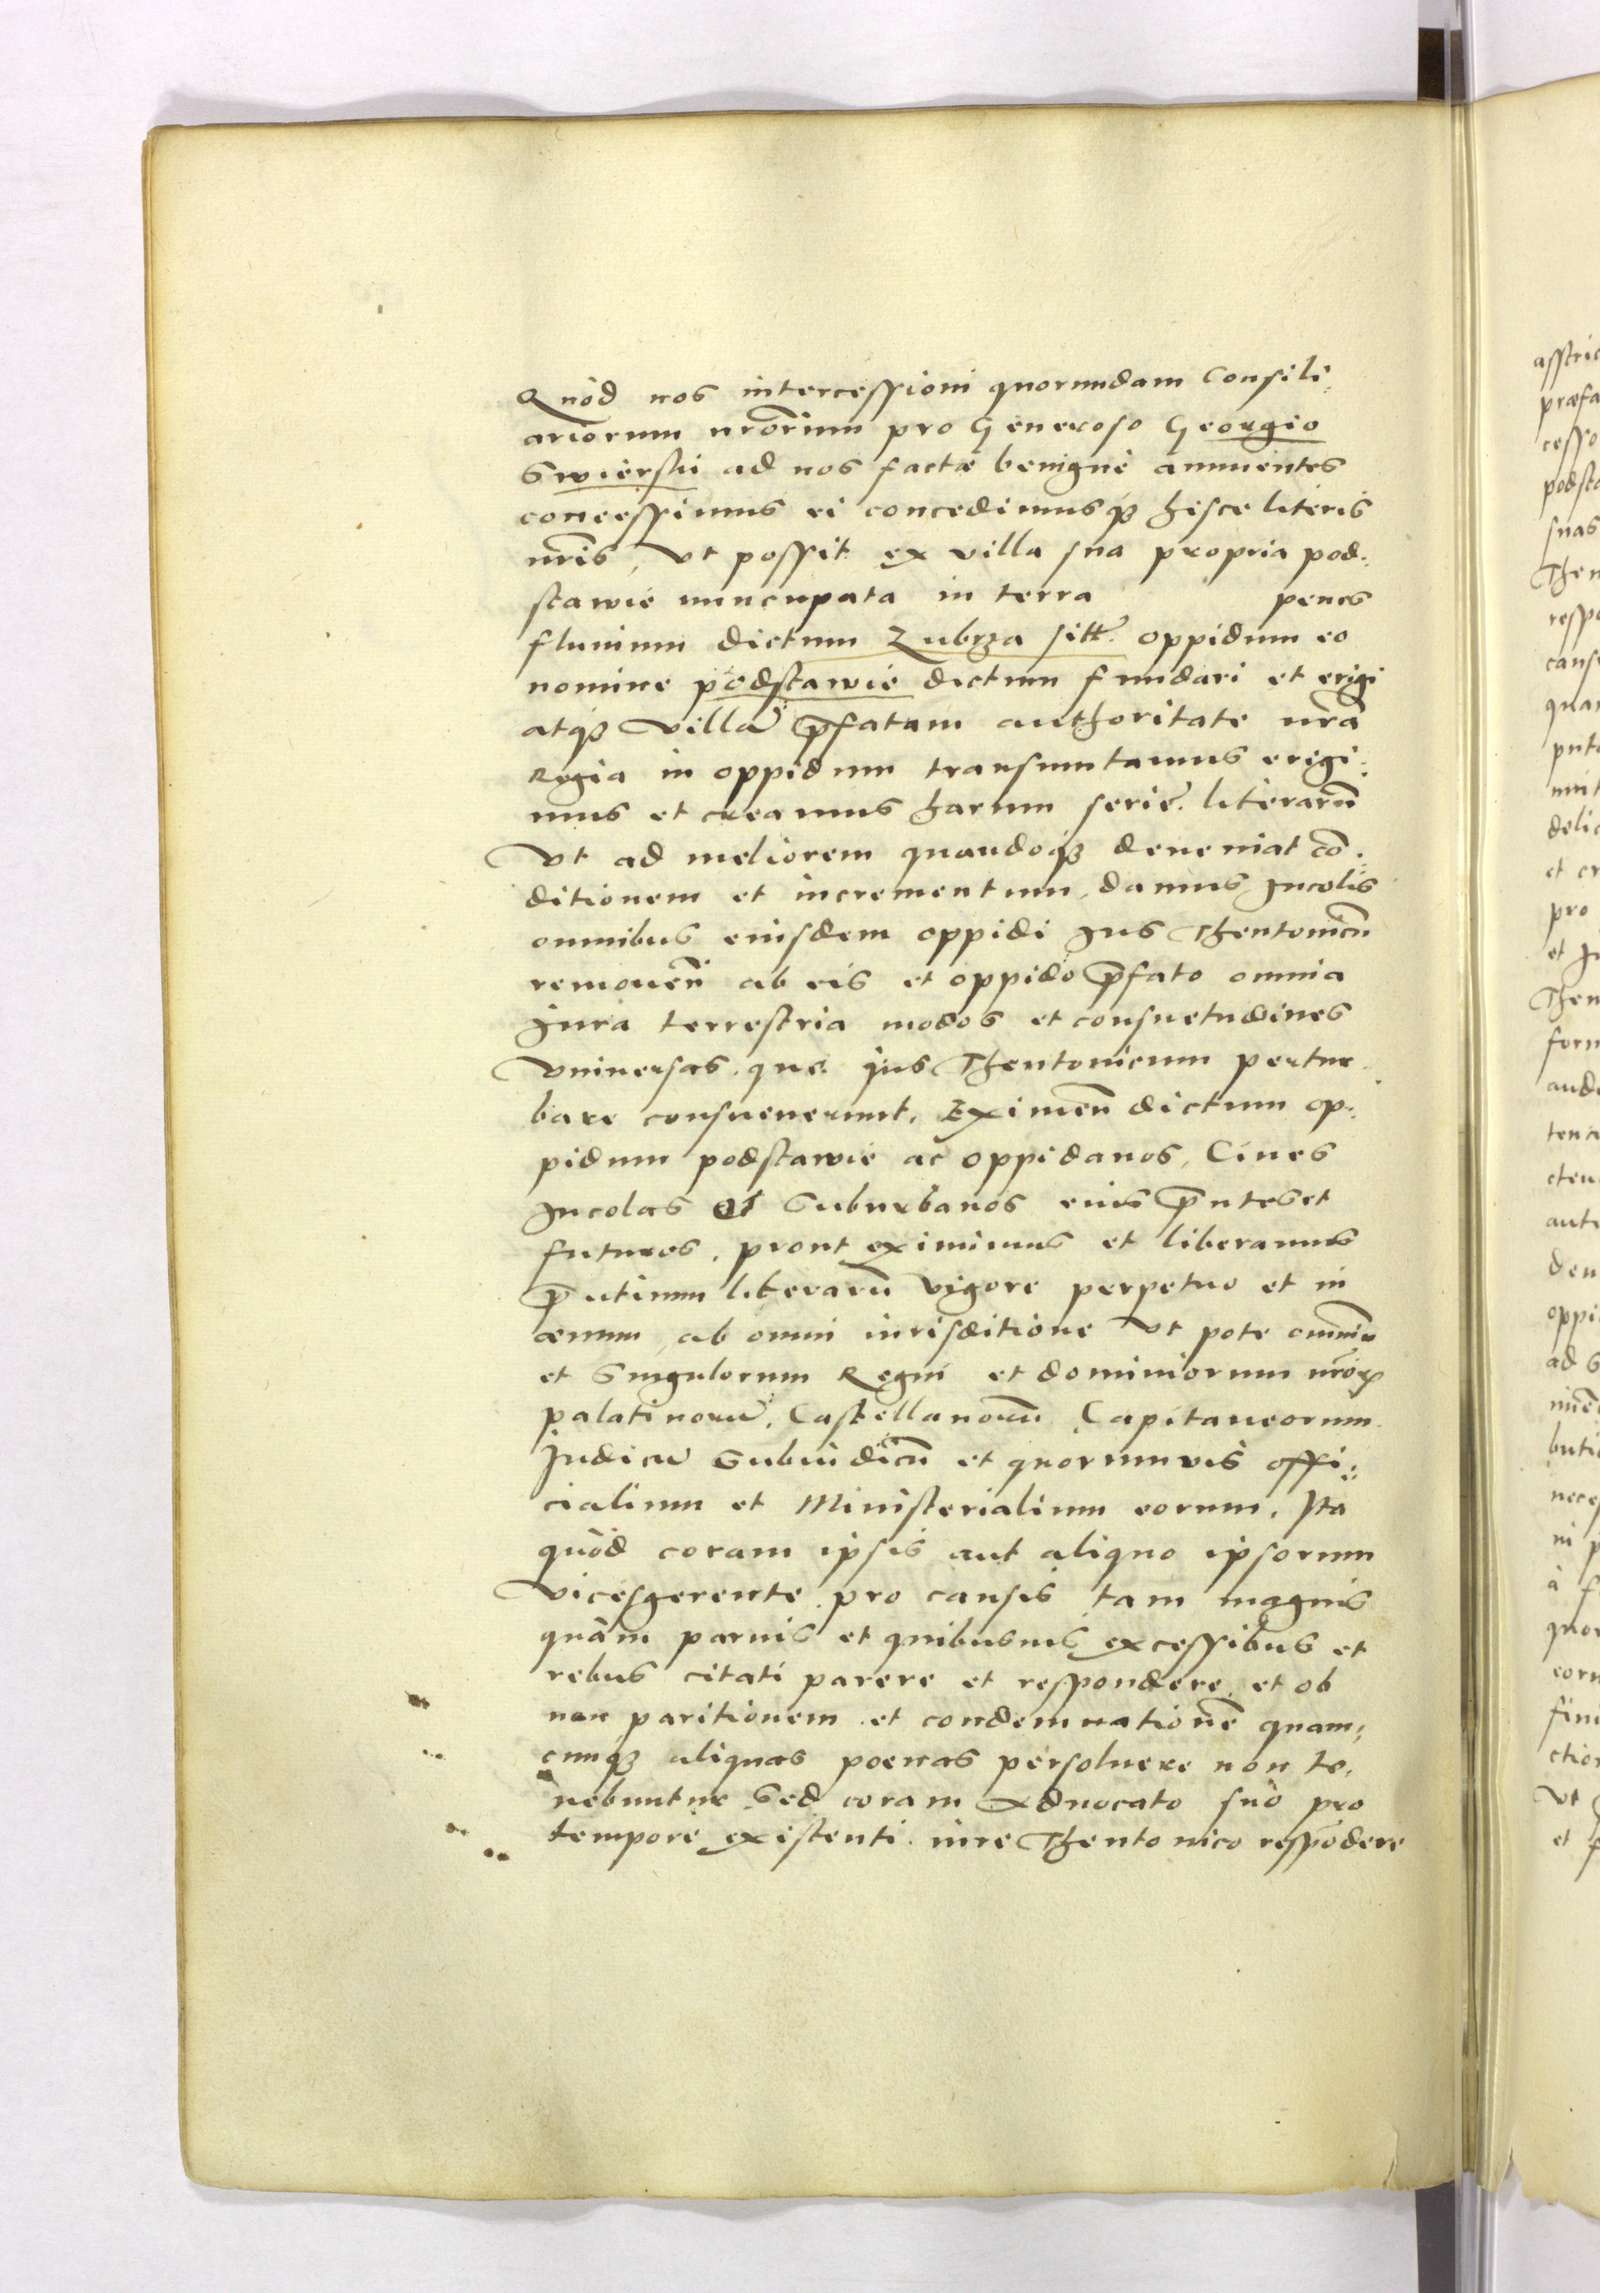 Quòd nos intercessioni quorundam Consili:
ariorum nr̃orum pro Generoso Georgio
Swierski ad nos factæ benignè annuentes
concessimus ei concedimusq₃ hisce literis
nr̃is, Vt possit ex villa sua propria pod:
stawie nuncupata in terra penes
fluuium dictum Zubrza sitt. oppidum eo
nomine podstawie dictum fundari et erigi
atq₃ Villã p̃fatam authoritate nr̃a
Regia in oppidum transmutamus erigi:
mus et creamus harum serie. literarũ
Vt ad meliorem quandoq₃ deueniat cõ:
ditionem et incrementum, damus Incolis
omnibus eiusdem oppidi Jus Theutonicũ
remouen̄ ab eis et oppido p̃fato omnia
Jura terrestria modos et consuetudines
Vniuersas. que. jus Theutonicum pertur
bare consueuerunt. Eximen̄ dictum op:
pidum podstawie ac oppidanos, Ciues
Incolas et Suburbanos eius p̃ntes et
futuros, prout eximimus et liberamus
p̃ntium literarũ vigore perpetuo et in
æuum, ab omni iurisditione Vt pote omniũ
et Singulorum Regni et dominiorum nr̃oꝝ
palatinorũ, Castellanorũ Capitaneorum
Judicũ Subiudicũ et quorumuis offi:
cialium et Ministerialium eorum. Ita
quòd coram ipsis aut aliquo ipsorum
Vicesgerente pro causis tam magnis
quàm paruis et quibusuis excessibus et
rebus citati parere et respondere et ob
non paritionem et condemnationẽ quam:
cunq₃ aliquas poenas persoluere non te:
nebuntur Sed coram Aduocato suo pro
tempore existenti iure Theutonico respõdere